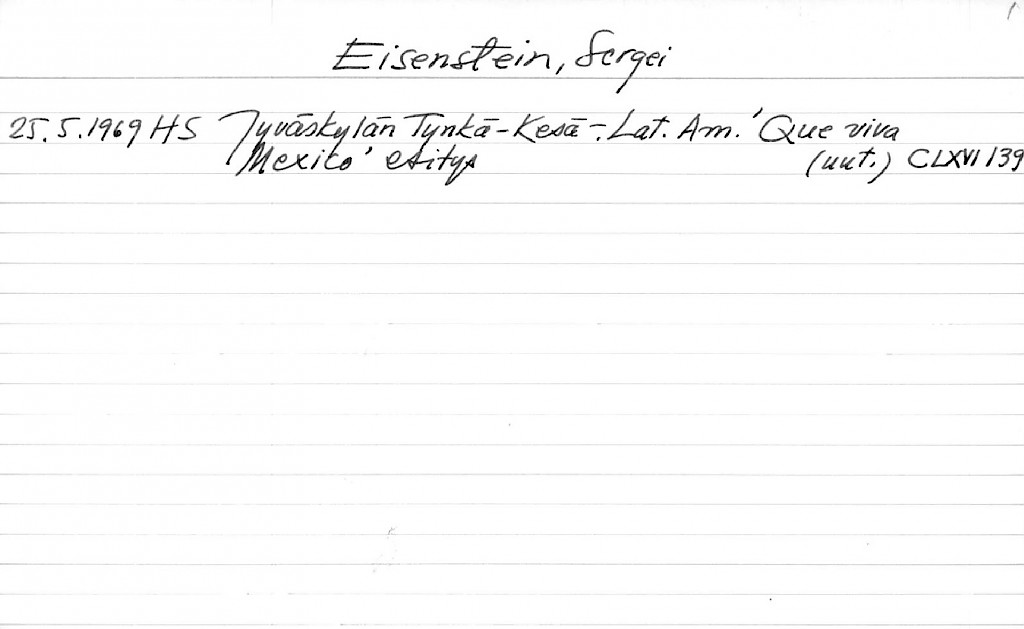 1
Eisenstein, Sergei
25.5.1969 HS Jyväskylän Tynkä-Kesä-: Lat. Am. 'Que viva
Mexico' esitys (uut.) CLXVI 139